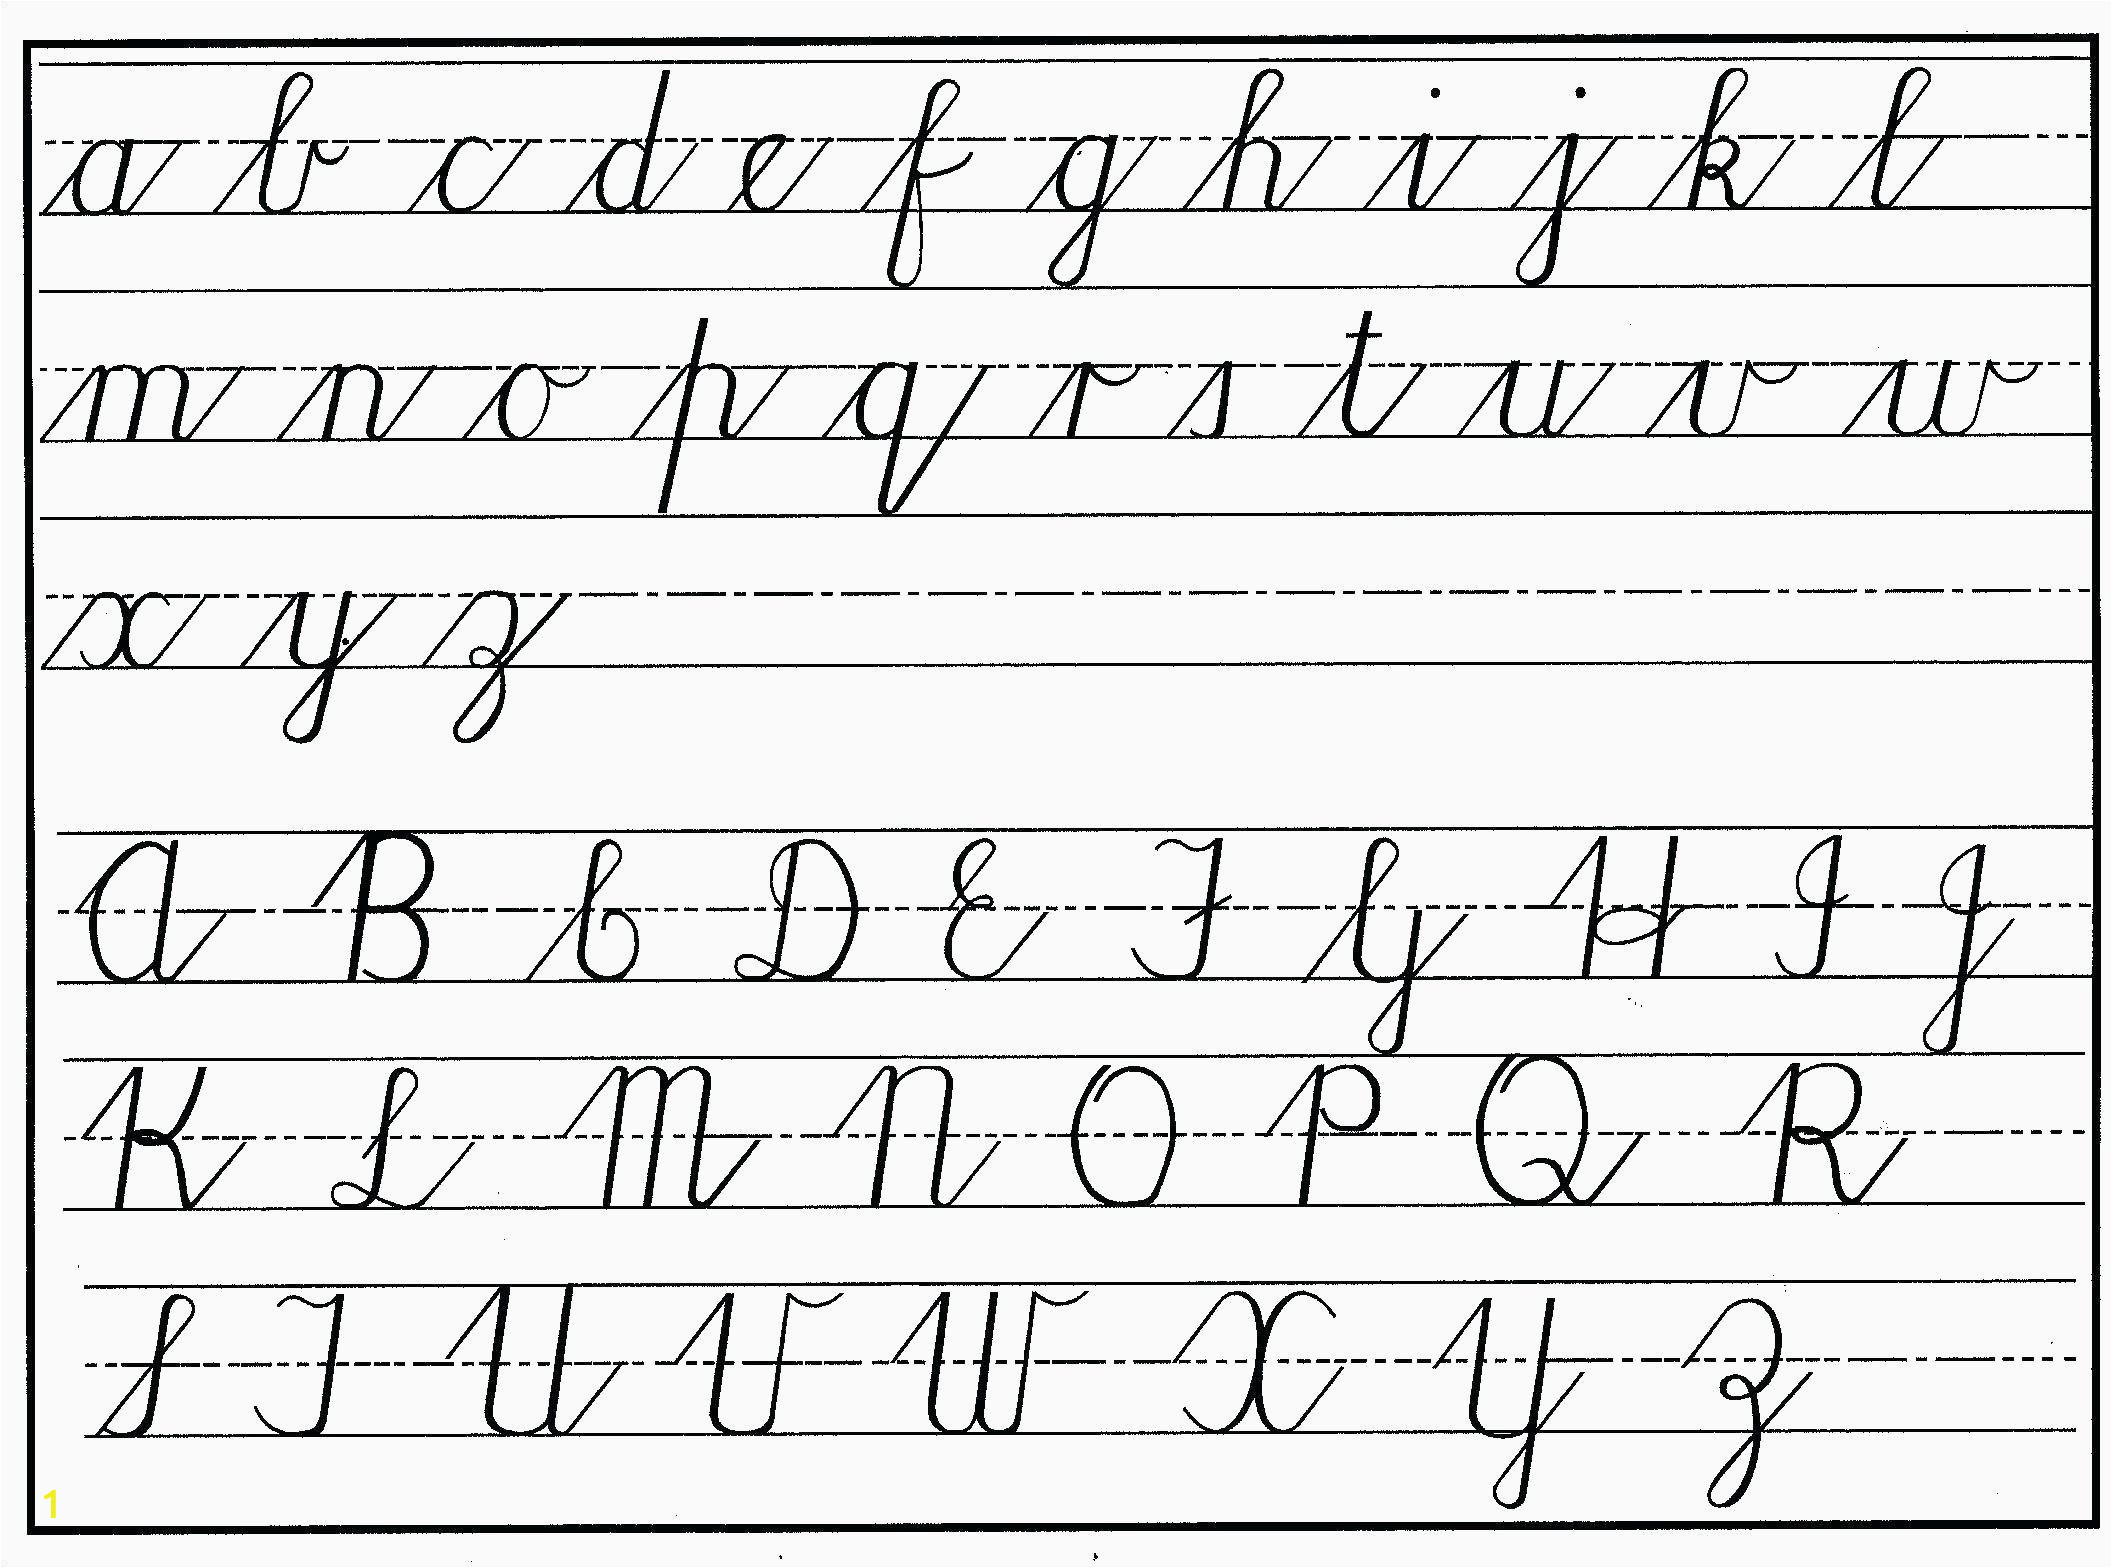 a b c d e f g h i j k l
m n o p q r s t u v w
x y z
A B C D E F G H I J
K L M N O P Q R
S T U V W X Y Z
1